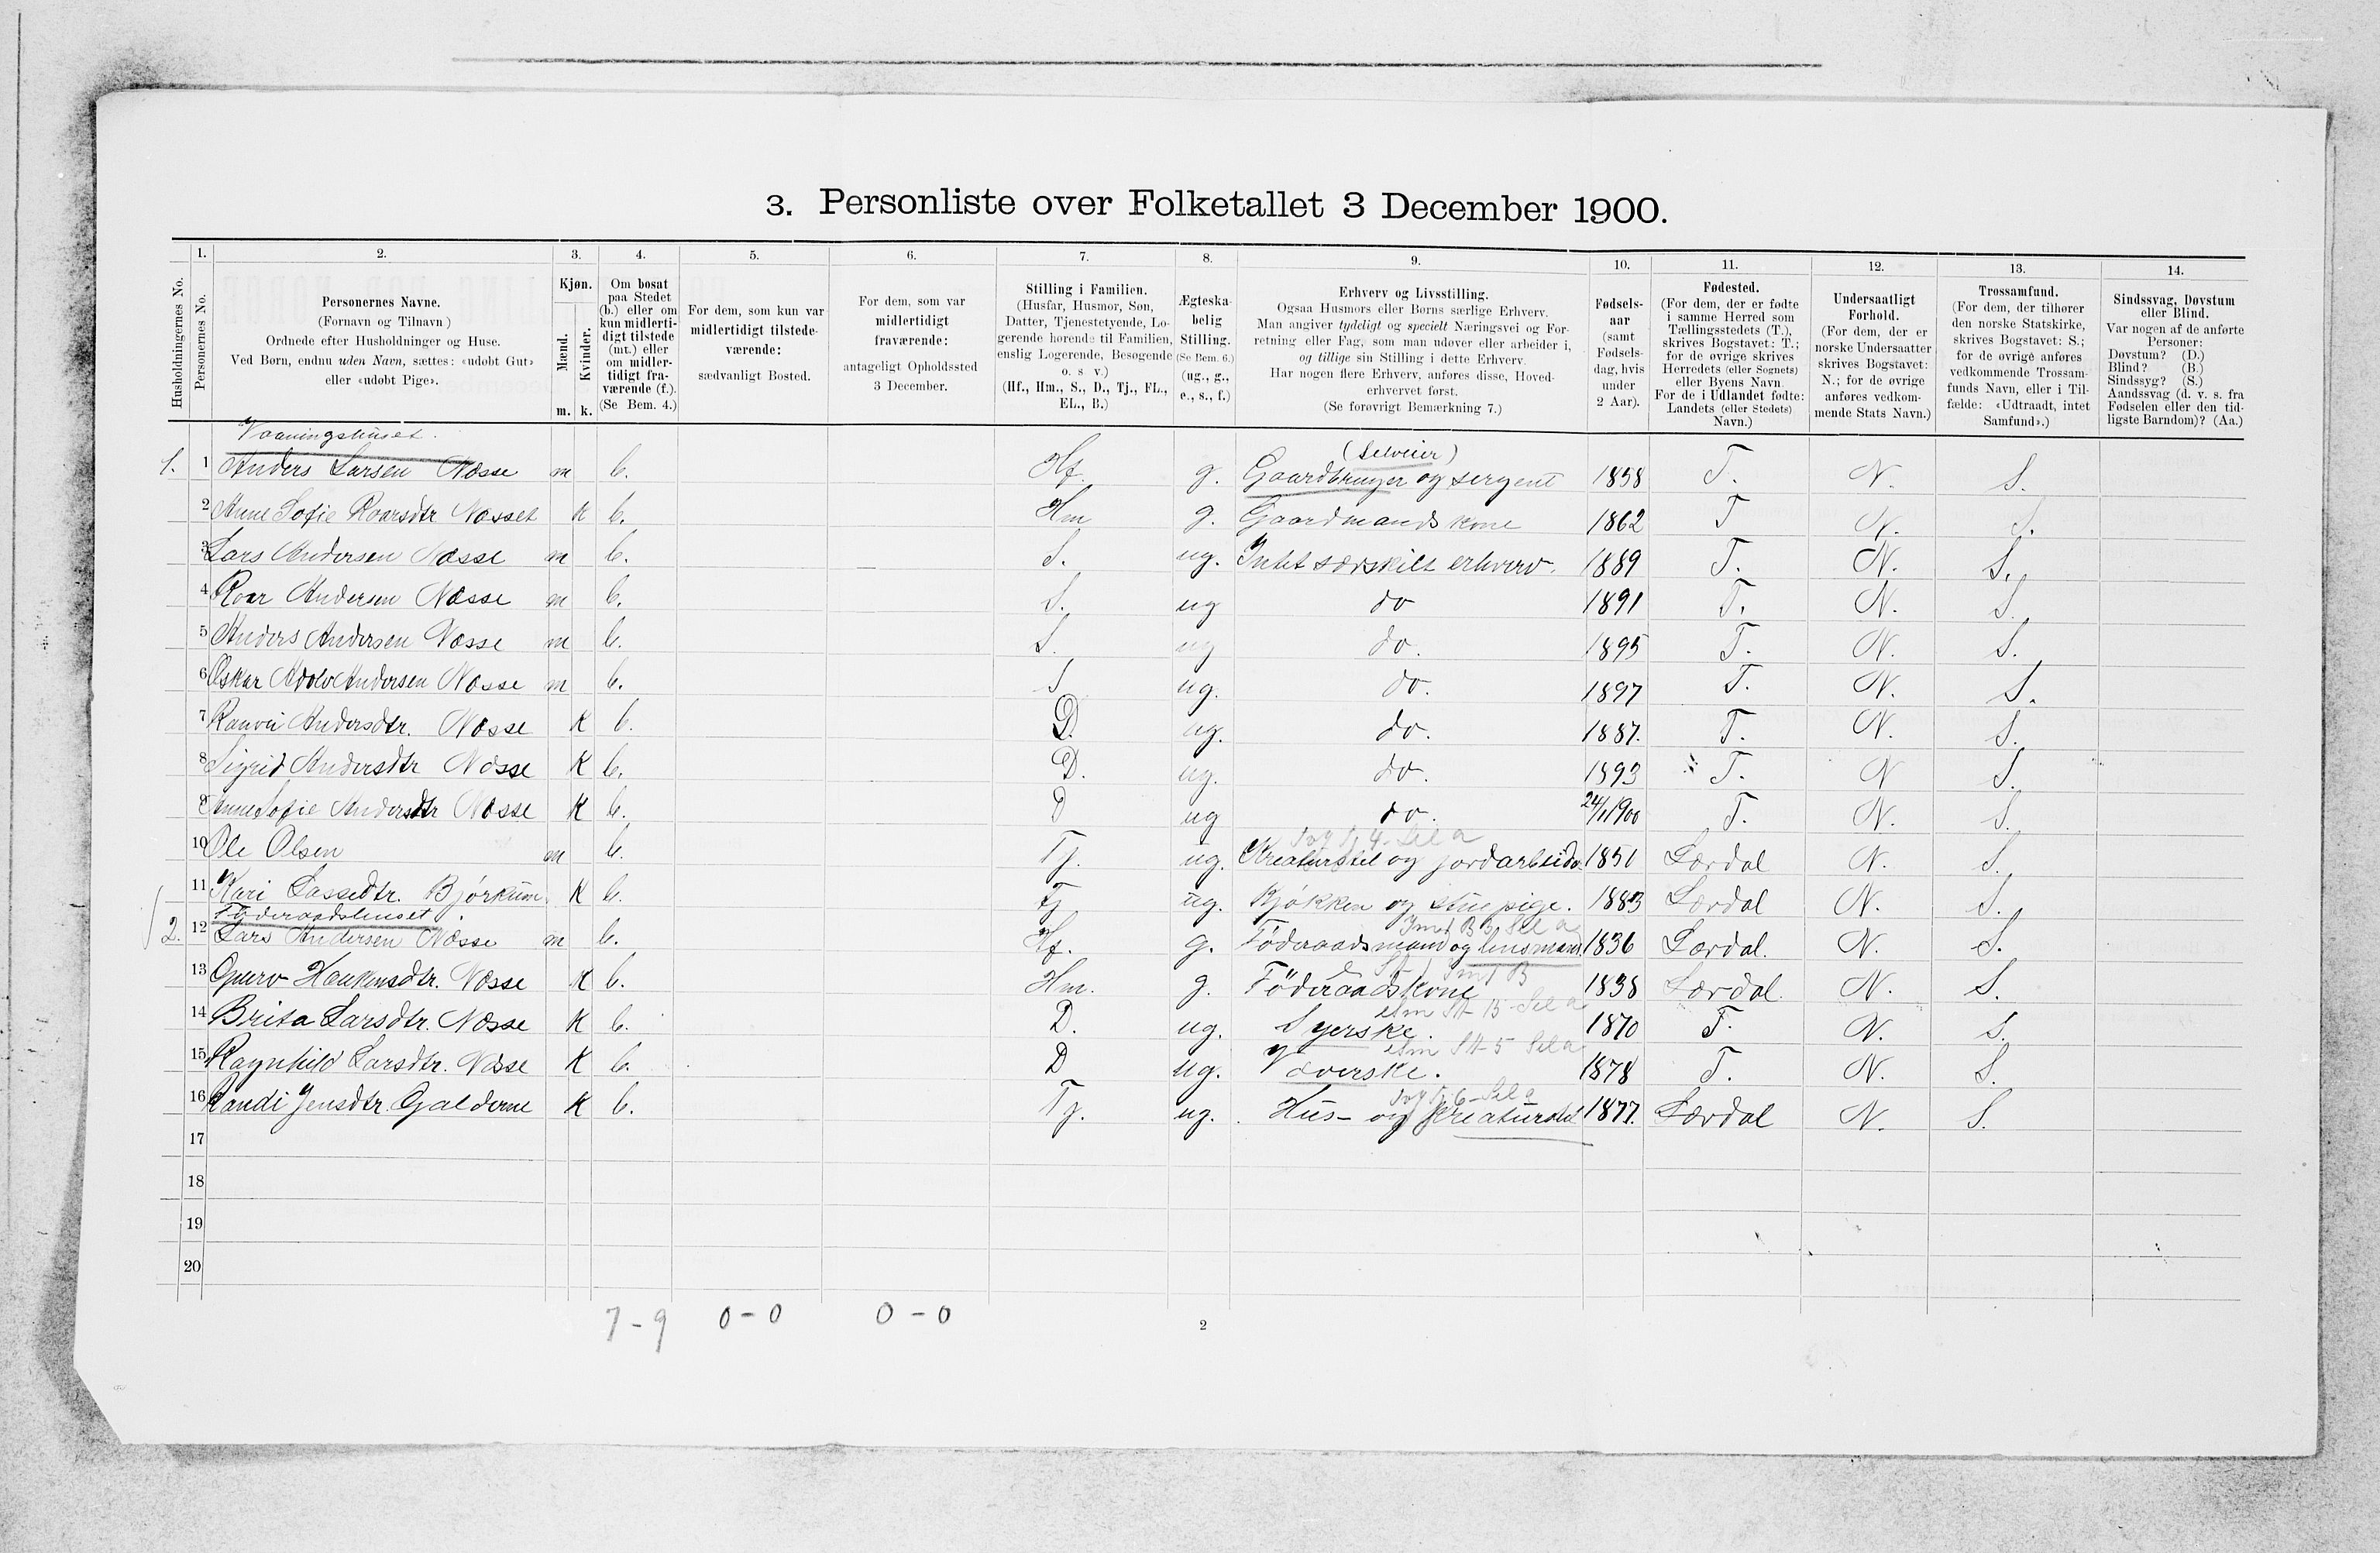 3. Personliste over Folketallet 3 December 1900.
Husholdningernes No.
1. Personernes No.
2. Personernes Navne.
(Fornavn og Tilnavn)
Ordnede efter Husholdninger og Huse.
Ved Børn, endnu uden Navn, sættes: «udøbt Gut»
eller «udøbt Pige».
3. Kjøn.
Mænd. Kvinder.
m. k.
4. Om bosat
paa Stedet
(b.) eller om
kun midlerti-
digt tilstede
(mt.) eller
om midler-
tidigt fra-
værende (f.).
(Se Bem. 4.)
5. For dem, som kun var
midlertidigt tilstede-
værende:
sædvanligt Bosted.
6. For dem, som var
midlertidigt
fraværende:
antageligt Opholdssted
3 December.
7. Stilling i Familien.
(Husfar, Husmor, Søn,
Datter, Tjenestetyende, Lo-
gerende hørende til Familien,
enslig Logerende, Besøgende
o. s v.)
(Hf., Hm., S., D., Tj., FL.,
EL., B.)
8. Ægteska-
belig
Stilling.
(Se Bem. 6.)
(ug., g.,
e., s., f.)
9. Erhverv og Livsstilling.
Ogsaa Husmors eller Børns særlige Erhverv.
Man angiver tydeligt og specielt Næringsvei og For-
retning eller Fag, som man udøver eller arbeider i,
og tillige sin Stilling i dette Erhverv.
Har nogen flere Erhverv, anføres disse, Hoved-
erhvervet først.
(Se forøvrigt Bemærkning 7.)
10. Fødsels-
aar
(samt
Fødsels-
dag, hvis
under
2 Aar).
11. Fødested.
(For dem, der er fødte
i samme Herred som
Tællingsstedets (T.),
skrives Bogstavet: T.;
for de øvrige skrives
Herredets (eller Sognets)
eller Byens Navn.
For de i Udlandet fødte:
Landets (eller Stedets)
Navn.)
12. Undersaatligt
Forhold.
(For dem, der er
norske Undersaatter
skrives Bogstavet:
N.; for de øvrige
anføres vedkom-
mende Stats Navn.)
13. Trossamfund.
(For dem, der tilhører
den norske Statskirke,
skrives Bogstavet: S.;
for de øvrige anføres
vedkommende Trossam-
funds Navn, eller i Til-
fælde: «Udtraadt, intet
Samfund».)
14. Sindssvag, Døvstum
eller Blind.
Var nogen af de anførte
Personer:
Døvstum? (D.)
Blind? (B.)
Sindssyg? (S.)
Aandssvag (d. v. s. fra
Fødselen eller den tid-
ligste Barndom)? (Aa.)
Vaaningshuset.
(Selveier)
1. 1 Anders Larsen Næsse m b. Hf. g. Gaardbruger og sergent 1858 T. N. S.
2 Anne Sofie Roarsdtr Næsset k b. Hm g. Gaardmands kone 1862 T N. S.
3 Lars Andersen Næsse m b. S. ug. Intet særskilt erhverv. 1889 T. N. S.
4 Roar Andersen Næsse m b. S. ug do 1891 T. N. S.
5 Anders Andersen Næsse m b. S. ug do. 1895 T. N. S.
6 Oskar Adolv Andersen Næsse m b. S ug. do. 1897 T. N. S.
7 Ranvei Andersdtr. Næsse K b. D. ug. do. 1887. T. N. S.
8 Sigrid Andersdtr Næsse K b. D. ug. do. 1893 T. N S.
9 Anne Sofie Andersdtr Næsse K b. D ug do. 24/1 1900 T. N. S.
10 Ole Olsen m b. Tj. ug. Kreaturstel og jordarbeide 1851 Lærdal N. S.
11 Kari Lassedtr. Bjørkum K b. Tj ug. Kjøkken og stuepige. 1883 Lærdal N. S.
Føderaadshuset.
2. 12 Lars Andersen Næsse m b. Hf. g. Föderaadsmand og lensmand 1836 Lærdal. N. S.
13 Gurv Haukensdtr. Næsse K b. Hm. g. Föderaadskone 1838 Lærdal. N. S.
14 Brita Larsdtr. Næsse K b. D. ug. Syerske. 1870 T. N. S.
15 Ragnhild Larsdtr. Næsse K b. D ug. Væverske. 1878 T. N. S.
16 Randi Jensdtr. Galderne K b. Tj. ug. Hus- og Kreaturstel 1877. Lærdal N. S.
17
18
19
20
7-9 0-0 0-0
2